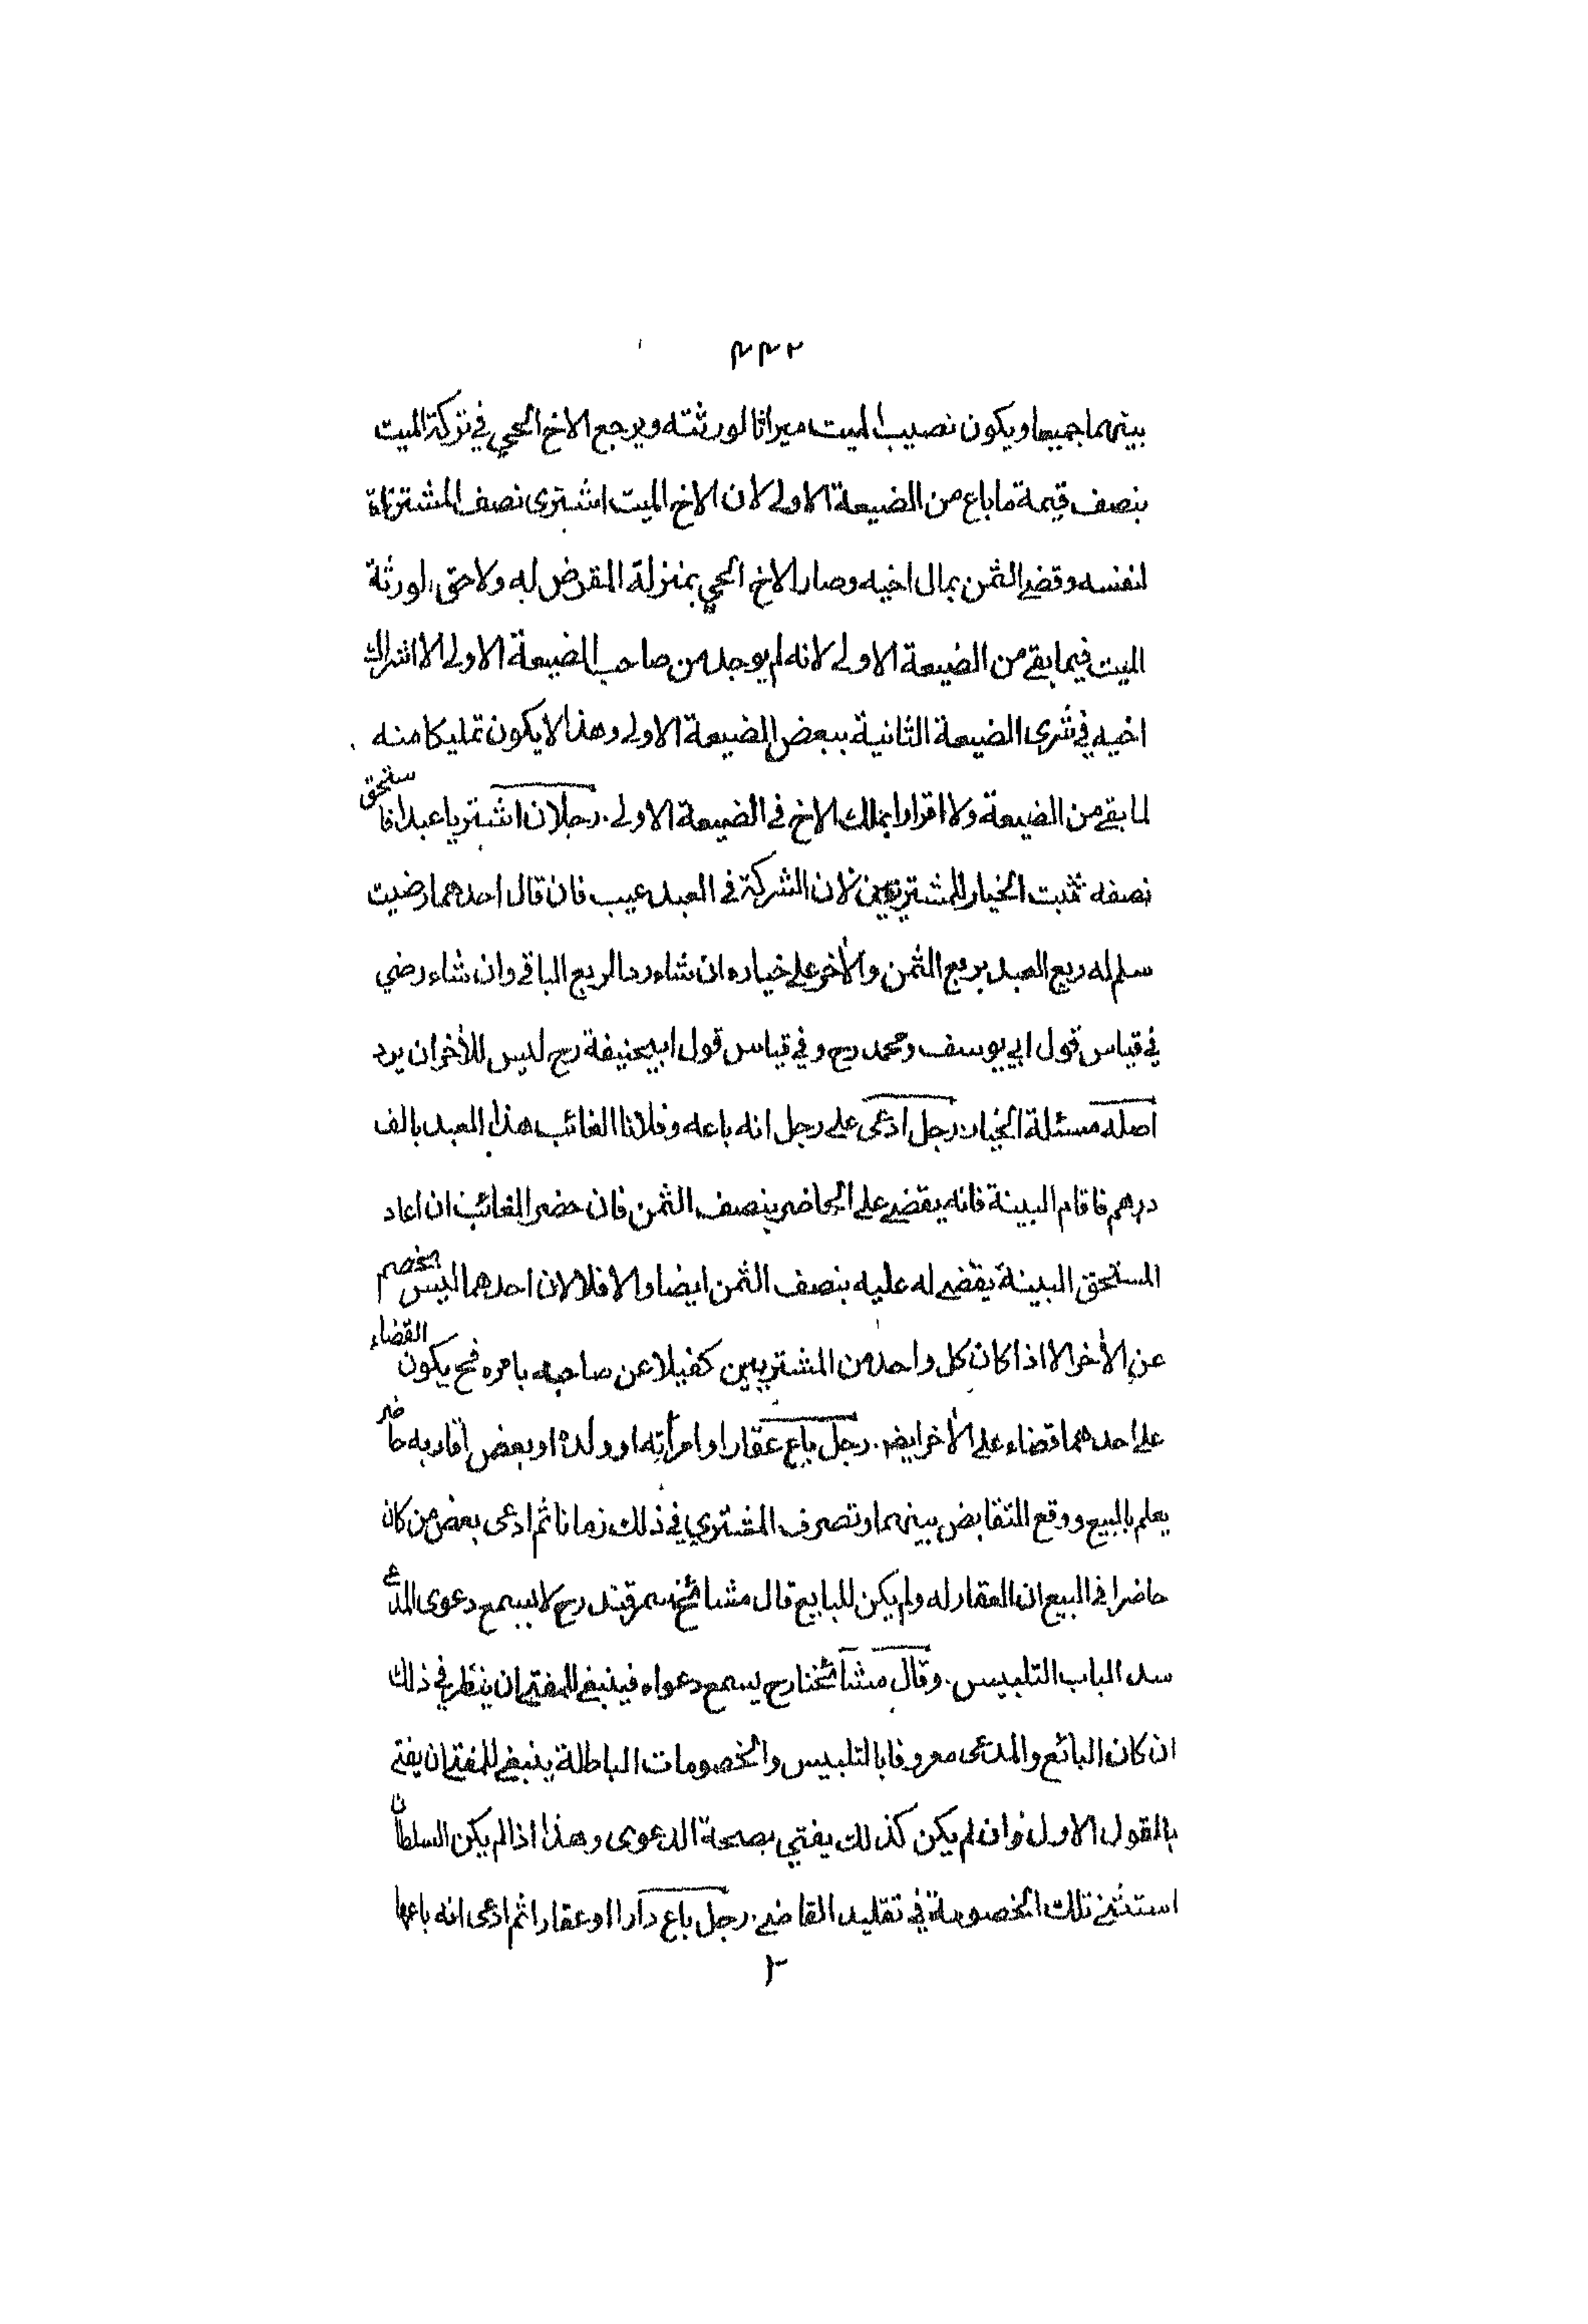 ٢٣٣
بينهما جميعا ويكون نصيب الميت ميراثا لورثته ويرجع الاخ الحي في تركة الميت
بنصف قيمة ما باع من الضيعة الاولى لان الاخ الميت اشترى نصف المشتراة
لنفسه وقضى الثمن بمال اخيه وصار الاخ الحي بمنزلة المقرض له ولا حق لورثة
الميت فيما بقي من الضيعة الاولى لانه لم يوجد من صاحب الضيعة الاولى الا اشراك
اخيه في شرى الضيعة الثانية ببعض الضيعة الاولى وهذا لا يكون تمليكا منه
لما بقي من الضيعة ولا اقرارا بملك الاخ في الضيعة الاولى . رجلان اشتريا عبدا فاستحق
نصفه ثبت الخيار للمشتريين لان الشركة في العبد عيب فان قال احدهما رضيت
سلم له ربع العبد بربع الثمن والآخر على خياره ان شاء رد الربع الباقي وان شاء رضي
في قياس قول ابي يوسف ومحمد رح وفي قياس قول ابيحنيفة رح ليس للآخر ان يرد
اصله مسئلة الخيار . رجل ادعى على رجل انه باعه وفلانا الغائب هذا العبد بالف
درهم فاقام البينة فانه يقضي على الحاضر بنصف الثمن فان حضر الغائب ان اعاد
المستحق البينة يقضي له عليه بنصف الثمن ايضا والا فلا لان احدهما ليس بخصم
عن الآخر الا اذا كان كل واحد من المشتريين كفيلا عن صاحبه بامره فح يكون القضاء
على احدهما قضاء على الآخر ايضا . رجل باع عقارا وامرأته او ولده او بعض اقاربه حاضر
يعلم بالبيع ووقع التقابض بينهما وتصرف المشتري في ذلك زمانا ثم ادعى بعض من كان
حاضرا في البيع ان العقار له ولم يكن للبايع قال مشائخ سمرقند رح لا يسمع دعوى المدعي
سد الباب التلبيس . وقال مشائخنا رح يسمع دعواه فينبغي للمفتي ان ينظر في ذلك
ان كان البائع والمدعى معروفا بالتلبيس والخصومات الباطلة ينبغي للمفتي ان يفتي
بالقول الاول وان لم يكن كذلك يفتي بصحة الدعوى وهذا اذا لم يكن السلطان
استثنى تلك الخصومة في تقليد القاضي . رجل باع دارا او عقارا ثم ادعى انه باعها
٢